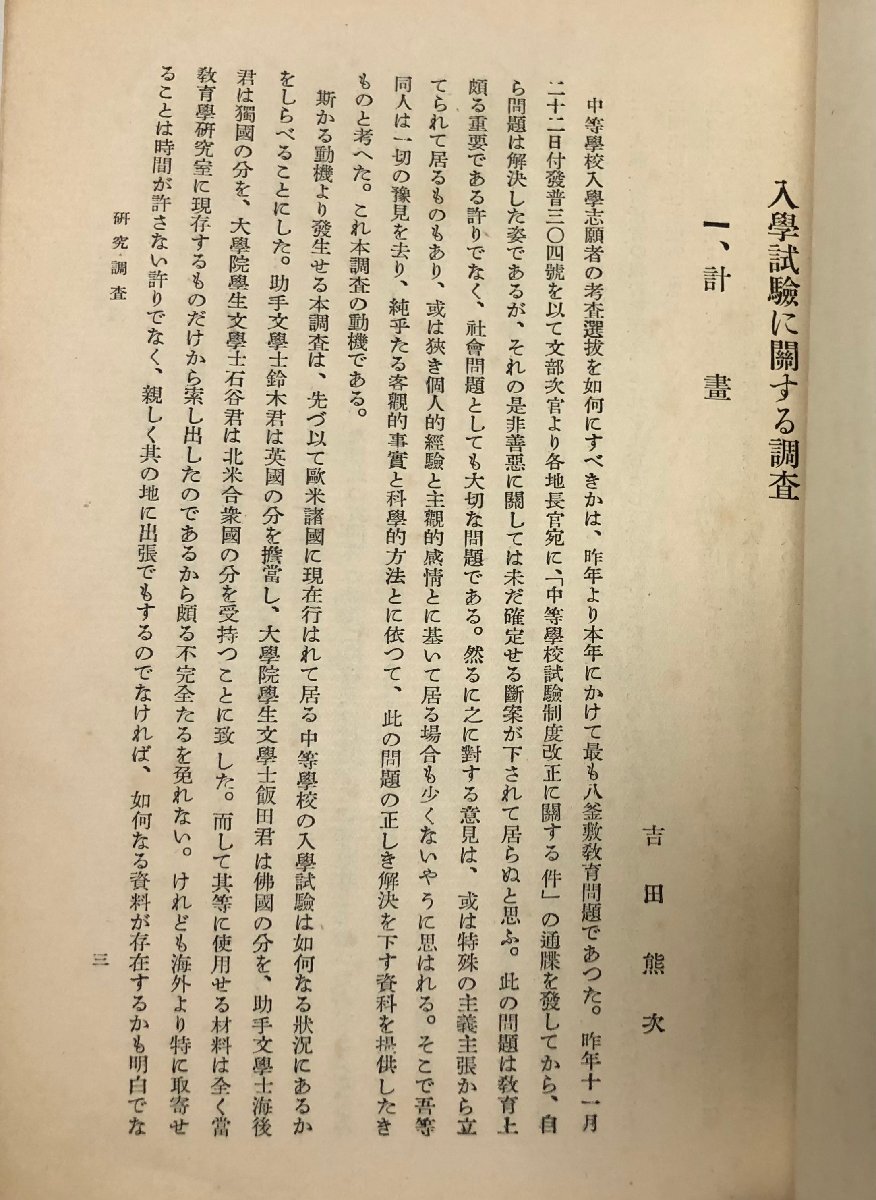 入學試驗に關する調査
一、計畫
吉田熊次
中等學校入學志願者の考査選拔を如何にすべきかは、昨年より本年にかけて最も八釜敷教育問題であつた。昨年十一月
二十二日付發普三〇四號を以て文部次官より各地長官宛に、「中等學校試驗制度改正に關する件」の通牒を發してから、自
ら問題は解決した姿であるが、それの是非善惡に關しては未だ確定せる斷案が下されて居らぬと思ふ。此の問題は教育上
頗る重要である許りでなく、社會問題としても大切な問題である。然るに之に對する意見は、或は特殊の主義主張から立
てられて居るものもあり、或は狹き個人的經驗と主觀的感情とに基いて居る場合も少くないやうに思はれる。そこで吾等
同人は一切の豫見を去り、純乎たる客觀的事實と科學的方法とに依つて、此の問題の正しき解決を下す資料を提供したき
ものと考へた。これ本調査の動機である。
斯かる動機より發生せる本調査は、先づ以て歐米諸國に現在行はれて居る中等學校の入學試驗は如何なる狀況にあるか
をしらべることにした。助手文學士鈴木君は英國の分を擔當し、大學院學生文學士飯田君は佛國の分を、助手文學士海後
君は獨國の分を、大學院學生文學士石谷君は北米合衆國の分を受持つことに致した。而して其等に使用せる材料は全く當
教育學研究室に現存するものだけから索し出したのであるから頗る不完全たるを免れない。けれども海外より特に取寄せ
ることは時間が許さない許りでなく、親しく其の地に出張でもするのでなければ、如何なる資料が存在するかも明白でな
研究調査
三